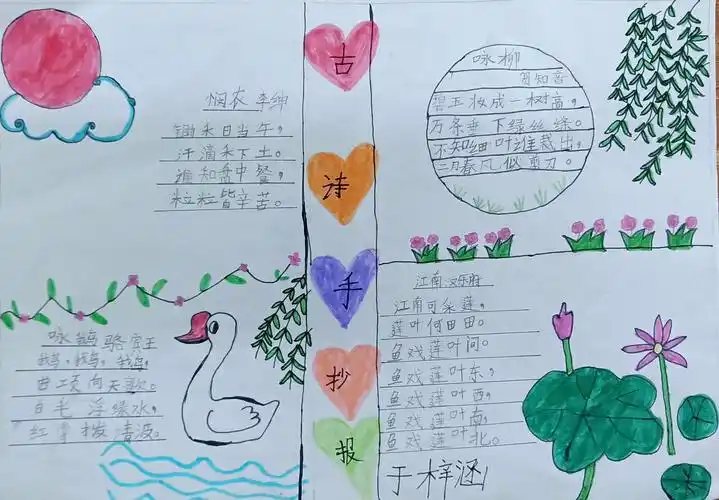 古
诗
手
抄
报
悯农 李绅
锄禾日当午，
汗滴禾下土。
谁知盘中餐，
粒粒皆辛苦。
咏柳
贺知章
碧玉妆成一树高，
万条垂下绿丝绦。
不知细叶谁裁出，
二月春风似剪刀。
咏鹅 骆宾王
鹅，鹅，鹅，
曲项向天歌。
白毛浮绿水，
红掌拨清波。
江南 汉乐府
江南可采莲，
莲叶何田田。
鱼戏莲叶间。
鱼戏莲叶东，
鱼戏莲叶西，
鱼戏莲叶南，
鱼戏莲叶北。
于梓涵